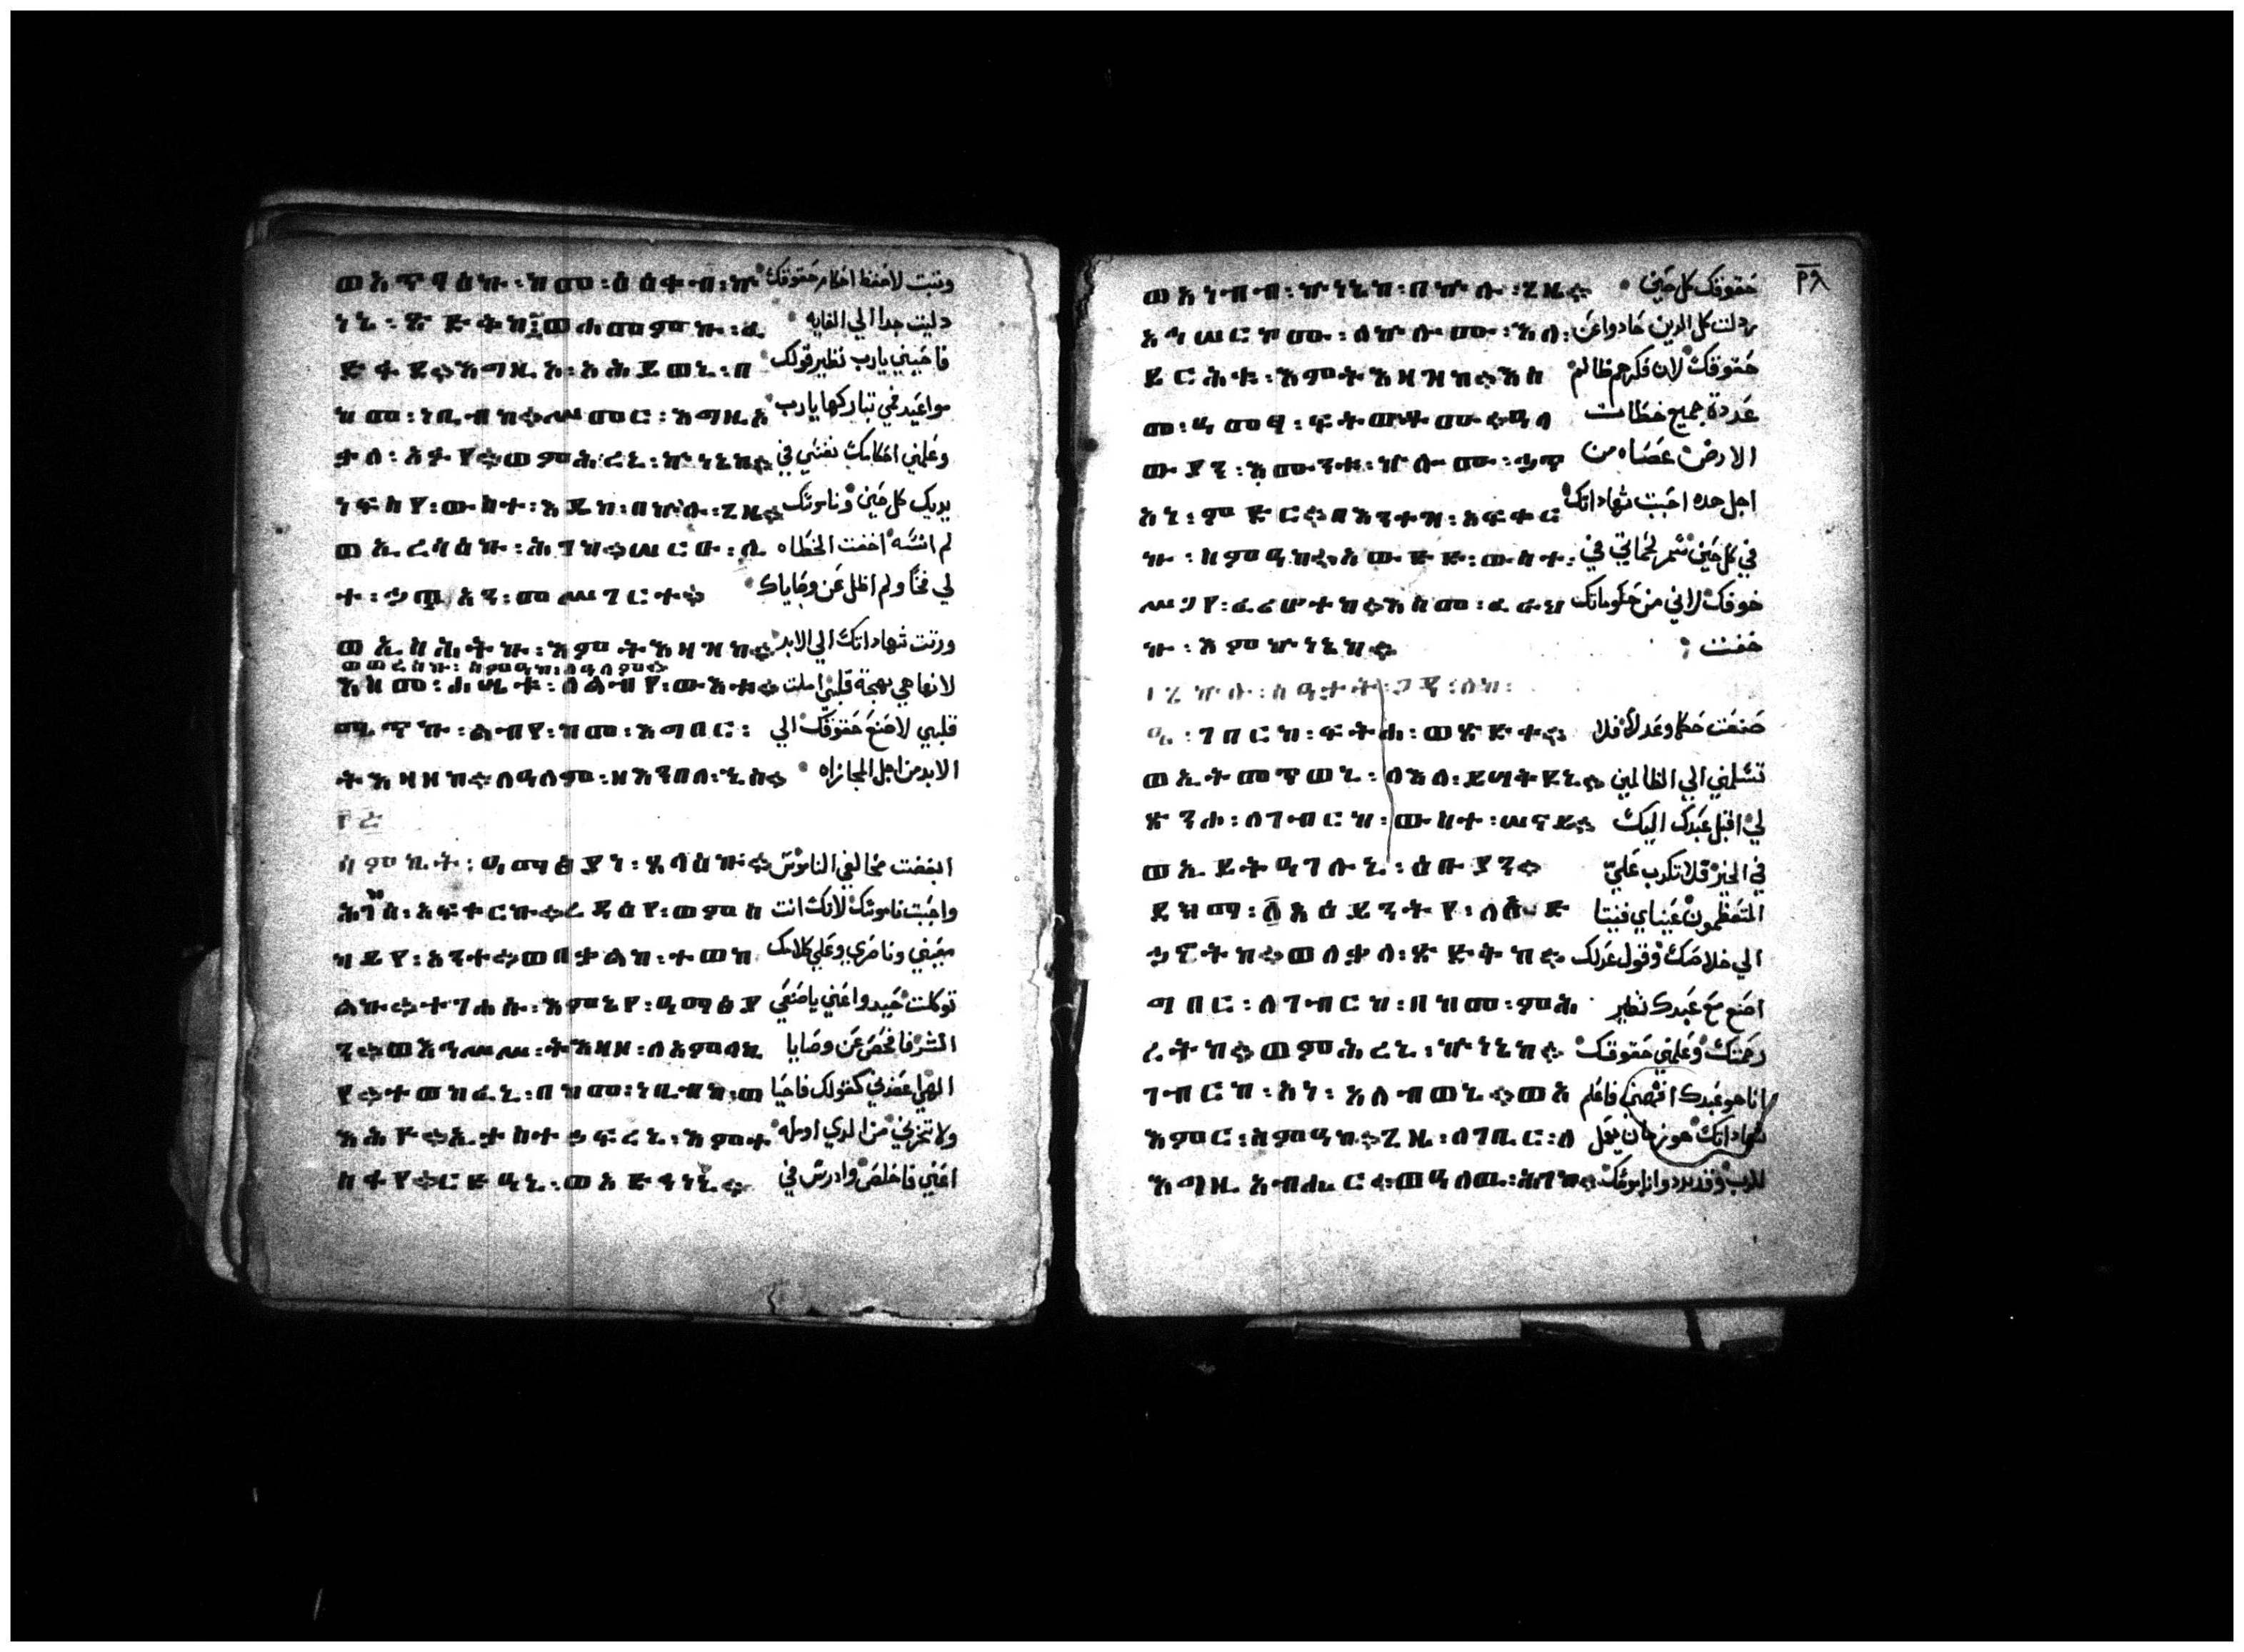 ወአጥባዕኩ፡ከመ፡ዕዕቀብ፡ኵ ونبت لاحفظ احكام حقوقك
ነኔ፡ጽድቅከ፤ወሐመምኩ፡ፈ دليت جدا الي الغايه
እግዚኦ፡አሕይወኒ፡በ فاحييني يارب نظير قولك
ከመ፡ነቢብከ፨ሠመር፡እግዚአ مواعيد فمي تباركها يارب
ቃለ፡አፉየ፨ወምሕረኒ፡ኵነኔከ፨ وعلمني احكامك نفسي في
ነፍስየ፡ውስተ፡እዴከ፡በኵሉ፡ጊዜ፨ يديك كل حين وناموسك
ወኢረሳዕኩ፡ሕገከ፨ሠርዑ፡ሊ لم انسه اخفت الخطاه
ተ፡ኃጥአን፡መሥገርተ፨ لي فخا ولم اظل عن وصاياك
ወኢስሕትኩ፡እምትእዛዝከ፨ ورثت شهاداتك الي الابد
ወወረስኩ፡ስምዓከ፡ለዓለም፨
እስመ፡ሐሤቱ፡ለልብየ፡ውእቱ፨ لانها هي بهجة قلبي املت
ሜጥኩ፡ልብየ፡ከመ፡እግበር፡ قلبي لاصنع حقوقك الي
ትእዛዘከ፨ለዓለም፡ዘእንበለ፡ الابد من اجل المجازاه
፲፭
ዓማፅያነ፡ጸላዕኩ፨ ابغضت مخالفي الناموس
ሕገከ፡አፍቀርኩ፨ረዳዕየ፡ወምስ واحببت ناموسك لانك انت
ካይየ፡አንተ፨ወበቃልከ፡ተወከ معيني وناصري وعلي كلامك
ልኩ፨ተገሐሱ፡እምኔየ፡ዓማፅያ توكلت حيدوا عني ياصانعي
ን፨ወእኅሥሥ፡ትእዛዞ፡ለአምላኪ الشر فافحص عن وصايا
የ፨ተወከፈኒ፡በከመ፡ነቢብከ፡ወ الهي اعضدني كقولك فاحيا
አሕዮ፨ኢታስተኃፍረኒ፡እምተ ولا تخزني من الدي اومله
ስፋየ፨ርድዓኒ፡ወአድኅነኒ፨ اعني فاخلص وادرس في
፳፱
ወአነብብ፡ኵነኔከ፡በኵሉ፡ጊዜ፨ حقوقك كل حين
አኅሠርኮሙ፡ለኵሎሙ፡እለ፡ ردلت كل الدين حادوا عن
ይርሕቁ፡እምትእዛዝከ፨እስ حقوقك لان فكرهم ظالم
መ፡ዓመፃ፡ፍትወቶሙ፨ዓለ عددة جميع خطات
ውያን፡እሙንቱ፡ኵሎሙ፡ኃጥ الارض عصاه من
አነ፡ምድር፨በእንተዝ፡አፍቀር اجل هده احببت شهاداتك
ኩ፡ስምዓከ፨አውድድ፡ውስተ፡ في كل حين سمر لحماتي في
ሥጋየ፡ፈሪሆተከ፨እስመ፡ፈራህ خوفك لاني من حكوماتك
ኩ፡እምኵነኔከ፨ خفت
፲፮
ገበርኩ፡ፍትሐ፡ወጽድቀ፨ صنعت حكما وعدلا فلا
ወኢትመጥወኒ፡ለእለ፡ይሣቅዩኒ፨ تسلمني الي الظالمين
ጽንሖ፡ለገብርከ፡ውስተ፡ሠናይ፨ لي اقبل عبدك اليك
ወኢይትዓገሉኒ፡ዕቡያን፨ في الخير فلا تكدب علي
ደክማ፡አዕይንትየ፡ المتعظمون عيناي فنيتا
ኃኒተከ፨ወለቃለ፡ጽድቅከ፨ الي خلاصك وقول عدلك
ግበር፡ለገብርከ፡በከመ፡ምሕ اصنع مع عبدك نظير
ረትከ፨ወምሕረኒ፡ኵነኔከ፨ رحمتك وعلمني حقوقك
ገብርከ፡አነ፡አለብወኒ፨ወአ انا هو عبدك افهمني فاعلم
እምር፡ስምዓከ፨ጊዜ፡ለገቢር፡ለ شهاداتك هو زمان يعمل
እግዚአብሔር፨ወዓለዉ፡ሕገከ፨ للرب وقد بددوا ناموسك